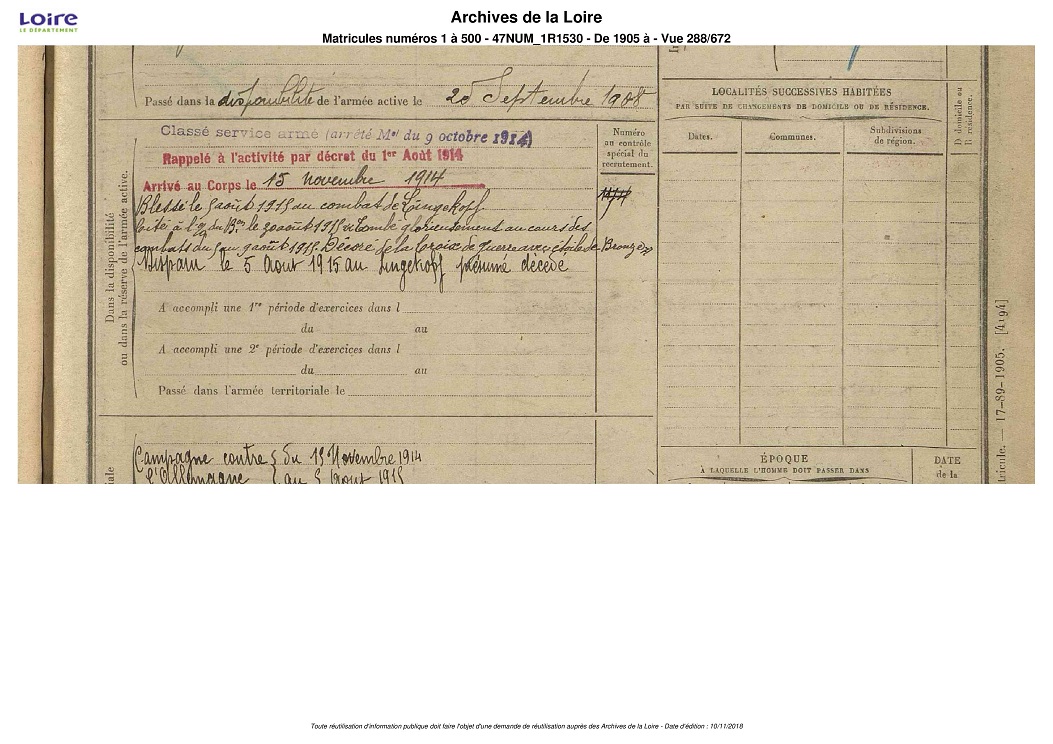 Loire
LE DÉPARTEMENT
Archives de la Loire
Matricules numéros 1 à 500 - 47NUM_1R1530 - De 1905 à - Vue 288/672
Passé dans la disponibilité de l'armée active le 20 Septembre 1908
Dans la disponibilité
ou dans la réserve de l'armée active.
Classé service armé (arrêté Mel du 9 octobre 1914)
Rappelé à l'activité par décret du 1er Août 1914
Arrivé au Corps le 15 novembre 1914
Blessé le 5 août 1915 au combat de Lingekopf
Cité à l' du Bon le 20 août 1915 Tombé glorieusement au cours des
combats du 5 au 9 août 1915. Décoré de la Croix de guerre avec étoile de Bronze
Disparu le 5 Aout 1915 au Lingekopf présumé décédé
A accompli une 1re période d'exercices dans l
du au
A accompli une 2e période d'exercices dans l
du au
Passé dans l'armée territoriale le
Campagne contre { du 15 Novembre 1914
l'Allemagne { au 5 Aout 1915
Numéro
au contrôle
spécial du
recrutement.
LOCALITÉS SUCCESSIVES HABITÉES
PAR SUITE DE CHANGEMENTS DE DOMICILE OU DE RÉSIDENCE.
Dates.
Communes.
Subdivisions
de région.
D domicile ou
R résidence.
ÉPOQUE
À LAQUELLE L'HOMME DOIT PASSER DANS
DATE
de la
17-89-1905. [4194]
Toute réutilisation d'information publique doit faire l'objet d'une demande de réutilisation auprès des Archives de la Loire - Date d'édition : 10/11/2018